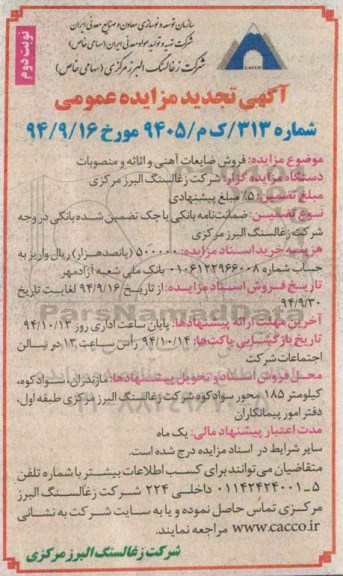 سازمان توسعه و نوسازی معادن و صنایع معدنی ایران
شرکت تهیه و تولید مواد معدنی ایران (سهامی خاص)
شرکت زغالسنگ البرز مرکزی (سهامی خاص)
CACCO
نوبت دوم
آگهی تجدید مزایده عمومی
شماره ۳۱۳/ک م/۹۴۰۵ مورخ ۹۴/۹/۱۶
موضوع مزایده: فروش ضایعات آهنی و اثاثه و منصوبات
دستگاه مزایده گزار: شرکت زغالسنگ البرز مرکزی
مبلغ تضمین: ۵٪ مبلغ پیشنهادی
نوع تضمین: ضمانت‌نامه بانکی یا چک تضمین شده بانکی در وجه
شرکت زغالسنگ البرز مرکزی
هزینه خرید اسناد مزایده: ۵۰۰۰۰۰ (پانصدهزار) ریال واریز به
حساب شماره ۰۱۰۶۱۲۲۹۶۶۰۰۸ بانک ملی شعبه آزادمهر
تاریخ فروش اسناد مزایده: از تاریخ ۹۴/۹/۱۶ لغایت تاریخ
۹۴/۹/۳۰
ParsNamadData
آخرین مهلت ارائه پیشنهادها: پایان ساعت اداری روز ۹۴/۱۰/۱۳
تاریخ بازگشایی پاکت‌ها: ۹۴/۱۰/۱۴ رأس ساعت ۱۳ در سالن
اجتماعات شرکت
محل فروش اسناد و تحویل پیشنهادها: مازندران، سوادکوه،
کیلومتر ۱۸۵ محور سوادکوه شرکت زغالسنگ البرز مرکزی طبقه اول،
دفتر امور پیمانکاران
مدت اعتبار پیشنهاد مالی: یک ماه
سایر شرایط در اسناد مزایده درج شده است.
متقاضیان می‌توانند برای کسب اطلاعات بیشتر با شماره تلفن
۵-۰۱۱۴۲۴۲۴۰۰۱ داخلی ۲۲۴ شرکت زغالسنگ البرز
مرکزی تماس حاصل نموده و یا به سایت شرکت به نشانی
www.cacco.ir مراجعه نمایند.
شرکت زغالسنگ البرز مرکزی